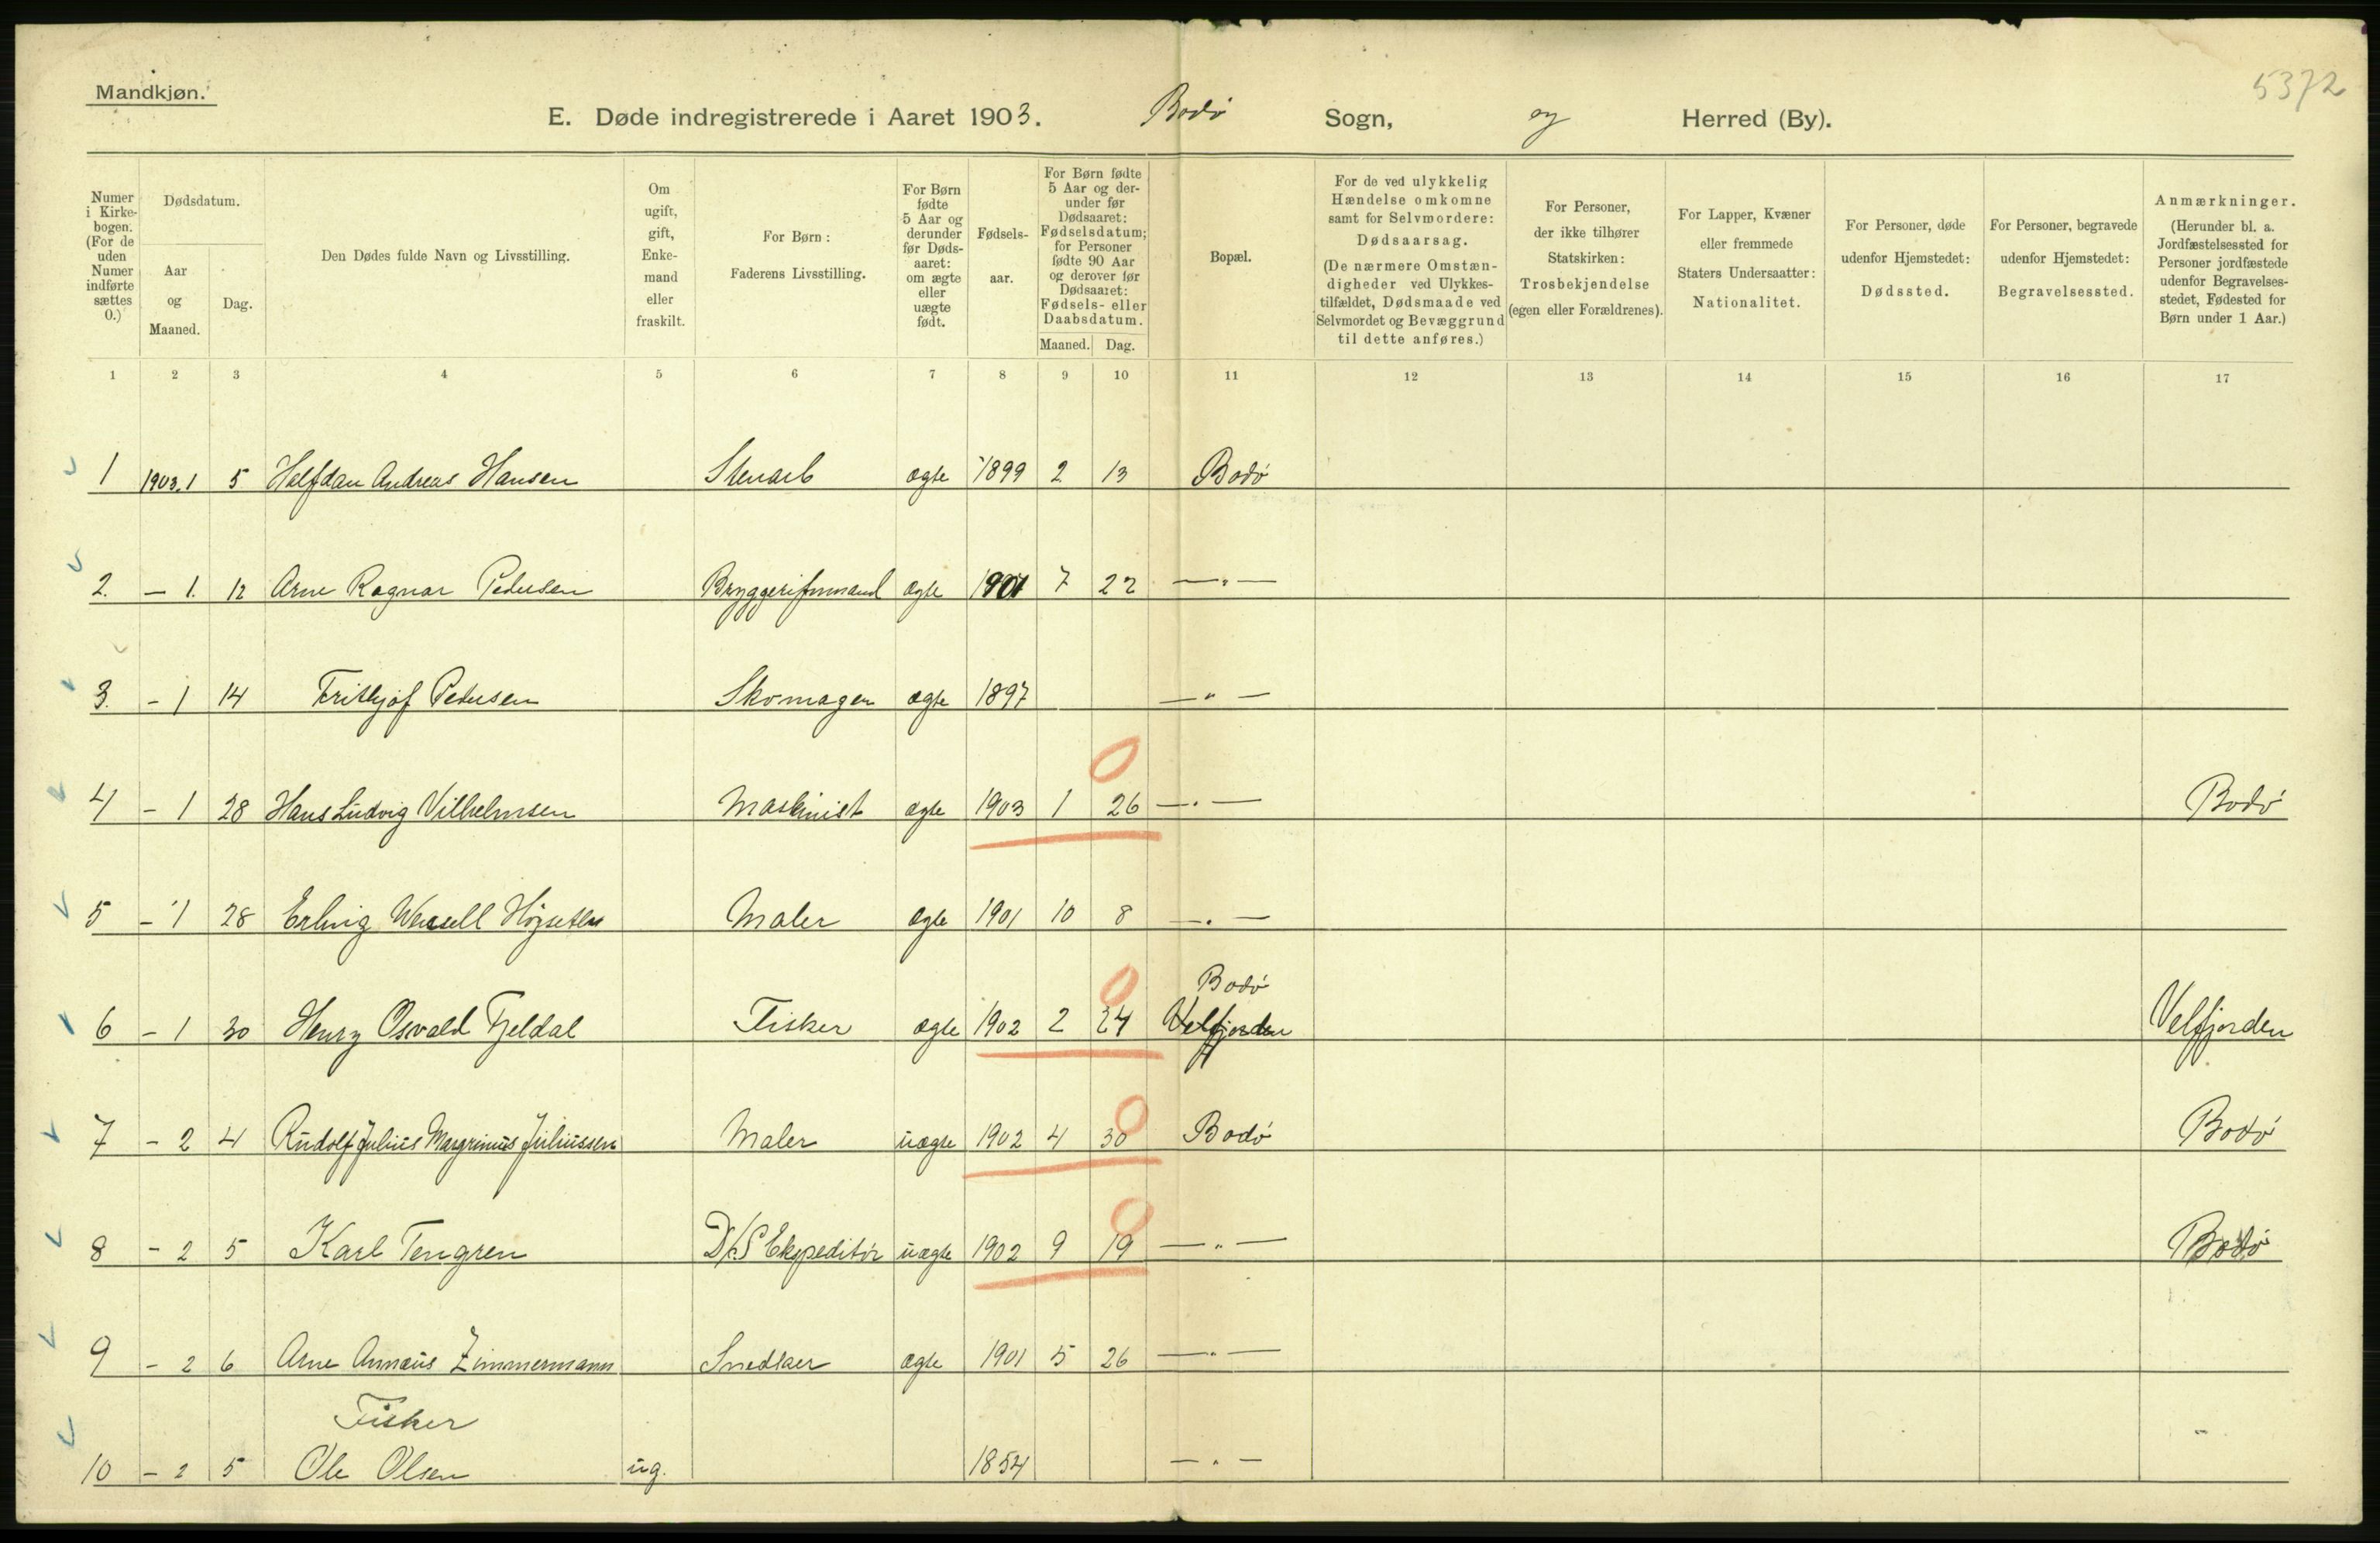 Mandkjøn.
5372
E. Døde indregistrerede i Aaret 1903. Bodø Sogn, og Herred (By).
Numer i Kirke-bogen. (For de uden Numer indførte sættes 0.)
Dødsdatum.
Aar og Maaned.
Dag.
Den Dødes fulde Navn og Livsstilling.
Om ugift, gift, Enke-mand eller fraskilt.
For Børn: Faderens Livsstilling.
For Børn fødte 5 Aar og derunder før Døds-aaret: om ægte eller uægte født.
Fødsels-aar.
For Børn fødte 5 Aar og der-under før Dødsaaret: Fødselsdatum; for Personer fødte 90 Aar og derover før Dødsaaret: Fødsels- eller Daabsdatum.
Maaned. Dag.
Bopæl.
For de ved ulykkelig Hændelse omkomne samt for Selvmordere: Dødsaarsag. (De nærmere Omstæn-digheder ved Ulykkes-tilfældet, Dødsmaade ved Selvmordet og Bevæggrund til dette anføres.)
For Personer, der ikke tilhører Statskirken: Trosbekjendelse (egen eller Forældrenes).
For Lapper, Kvæner eller fremmede Staters Undersaatter: Nationalitet.
For Personer, døde udenfor Hjemstedet: Dødssted.
For Personer, begravede udenfor Hjemstedet: Begravelsessted.
Anmærkninger. (Herunder bl. a. Jordfæstelsessted for Personer jordfæstede udenfor Begravelses-stedet, Fødested for Børn under 1 Aar.)
1 2 3 4 5 6 7 8 9 10 11 12 13 14 15 16 17
1 1903.1 5 Halfdan Andreas Hansen Stenarb ægte 1899 2 13 Bodø
2. – 1. 12 Arne Ragnar Pedersen Bryggeriformand ægte 1901 7 22 —„—
3. – 1 14 Frithjof Pedersen Skomager ægte 1897 —„—
4 – 1 28 Hans Ludvig Vilhelmsen Maskinist ægte 1903 1 26 —„— Bodø
0
5 – 1 28 Erling Høyseth Maler ægte 1901 10 8 —„—
Bodø
6 – 1 30 Henry Osvald Fjeldal Fisker ægte 1902 2 24 Velfjorden Velfjorden
0
7 – 2 4 Rudolf Julius Margrinius Juliussen Maler uægte 1902 4 30 Bodø Bodø
0
8 – 2 5 Karl Tengren D/S Ekspeditør uægte 1902 9 19 —„— Bodø
0
9 – 2 6 Arne Annæus Zimmermann Snedker ægte 1901 5 26 —„—
Fisker
10 – 2 5 Ole Olsen ug. 1854 —„—